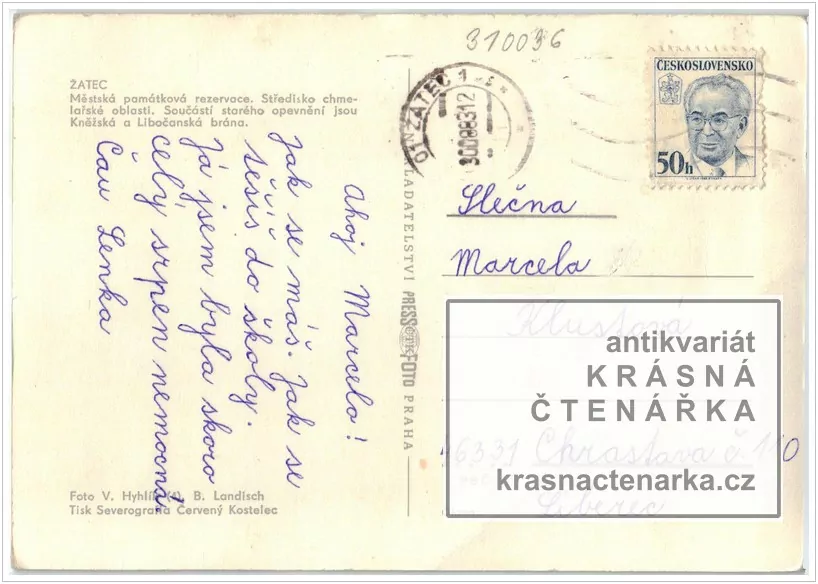 310036
ŽATEC
Městská památková rezervace. Středisko chme-
lařské oblasti. Součástí starého opevnění jsou
Kněžská a Libočanská brána.
Ahoj Marcelo!
Jak se máš. Jak se
těšíš do školy.
Já jsem byla skoro
celý srpen nemocná
Čau Lenka
Foto V. Hyhlík (4), B. Landisch
Tisk Severografia Červený Kostelec
NAKLADATELSTVÍ PRESSFOTO PRAHA
ČTK
ŽATEC 1
ČESKOSLOVENSKO
50h
Slečna
Marcela
Klustová
46331 Chrastava č. 110
Liberec
antikvariát
KRÁSNÁ
ČTENÁŘKA
krasnactenarka.cz